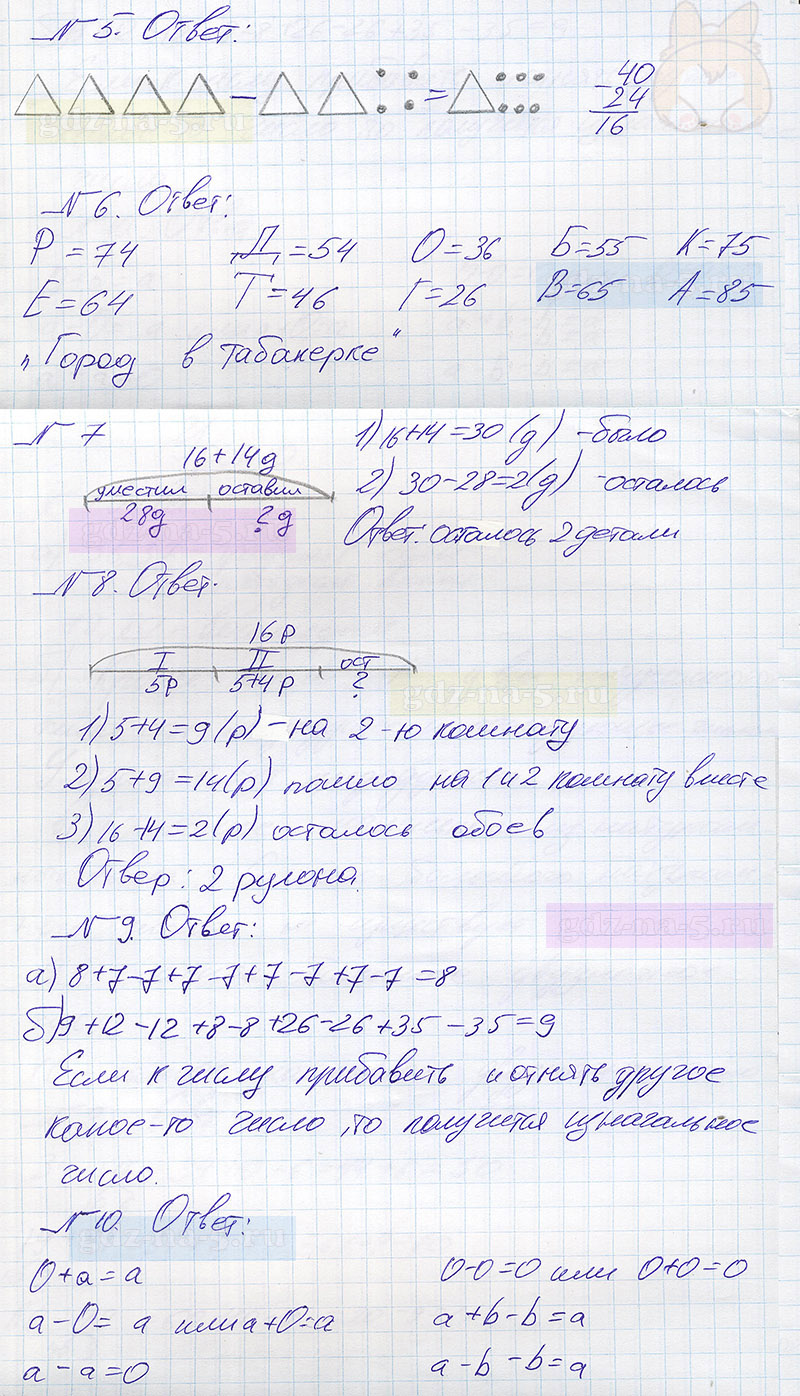 № 5. Ответ:
△△△△ − △△:: = △::: 
40
− 24
16
№ 6. Ответ:
Р = 74 Д = 54 О = 36 Б = 55 К = 75
Е = 64 Т = 46 Г = 26 В = 65 А = 85
„Город в табакерке“
№ 7
16 + 14 д
уместил оставил
28 д ? д
1) 16 + 14 = 30 (д) - было
2) 30 - 28 = 2 (д) - осталось
Ответ: осталось 2 детали
№ 8. Ответ.
16 р
I II ост
5р 5+4 р ?
1) 5 + 4 = 9 (р) - на 2-ю комнату
2) 5 + 9 = 14 (р) пошло на 1 и 2 комнату вместе
3) 16 - 14 = 2 (р) осталось обоев
Отвер: 2 рулона.
№ 9. Ответ:
а) 8 + 7 - 7 + 7 - 7 + 7 - 7 + 7 - 7 = 8
б) 9 + 12 - 12 + 8 - 8 + 26 - 26 + 35 - 35 = 9
Если к числу прибавить и отнять другое
какое-то число, то получится изначальное
число.
№ 10. Ответ:
0 + а = а 0 - 0 = 0 или 0 + 0 = 0
а - 0 = а или а + 0 = а а + b - b = а
а - а = 0 а - b - b = а
gdz-na-5.ru
gdz-na-5.ru
gdz-na-5.ru
gdz-na-5.ru
gdz-na-5.ru